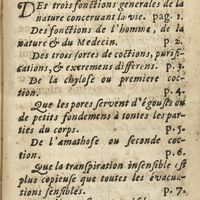 DEs trois fonctions generales de la
nature concernant la vie. pag. 1.
Des fonctions de l'homme, de la
nature & du Medecin. p. 2.
Des trois sortes de coctions, purifi-
cations, & excremens differens. p. 3.
De la chylose ou premiere coc-
tion. p. 4.
Que les pores servent d'égousts ou
de petits fondemens à toutes les par-
ties du corps. p. 5.
De l'amathose ou seconde coc-
tion. p. 6.
Que la transpiration insensible est
plus copieuse que toutes les évacua-
tions sensibles. p. 7.